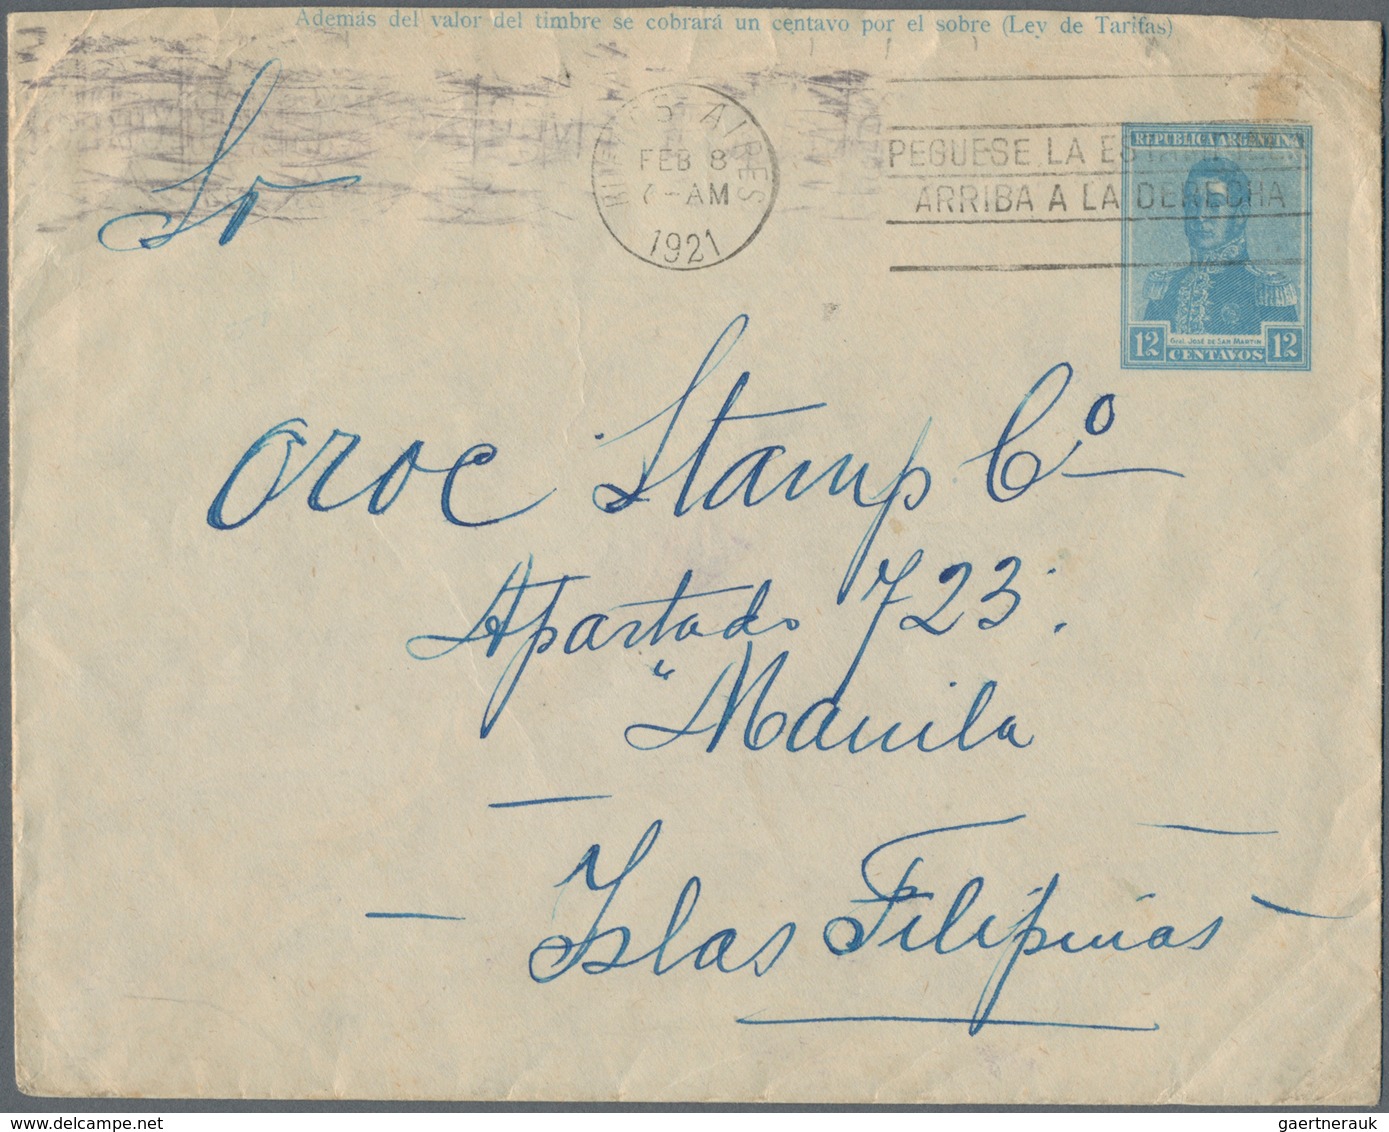 Además del valor del timbre se cobrará un centavo por el sobre (Ley de Tarifas)
BUENOS AIRES
FEB 8
-AM
1921
PEGUESE LA ESTAMPILLA
ARRIBA A LA DERECHA
REPUBLICA ARGENTINA
Gral. José de San Martín
12 CENTAVOS 12
Oroc Stamp Cº
Apartado 723.
"Manila
Islas Filipinas
gaertnerauk